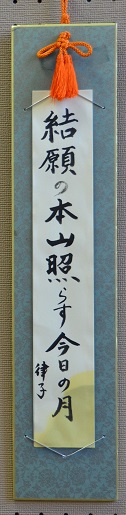 結願の本山照らす今日の月
律子